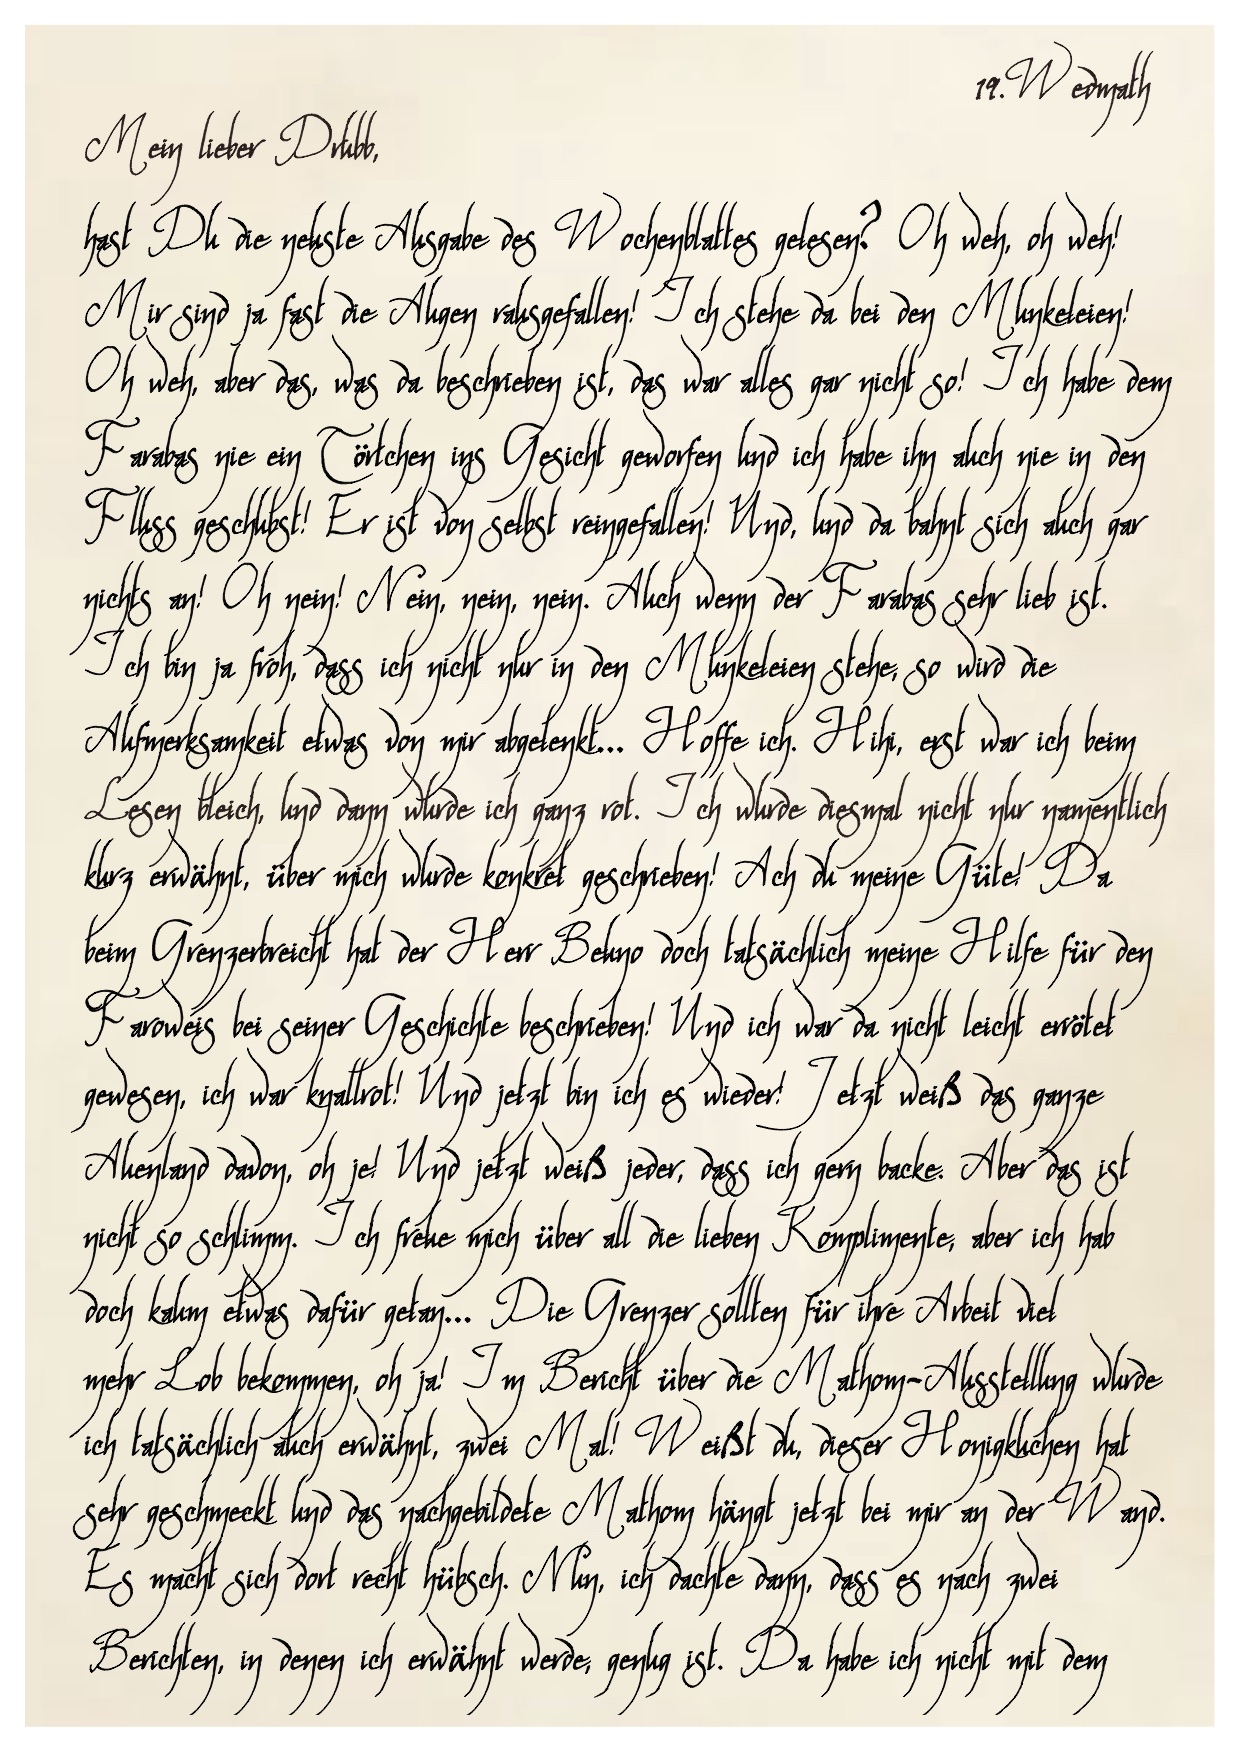 19. Wedmath
Mein lieber Drubb,
hast Du die neuste Ausgabe des Wochenblattes gelesen? Oh weh, oh weh!
Mir sind ja fast die Augen rausgefallen! Ich stehe da bei den Munkeleien!
Oh weh, aber das, was da beschrieben ist, das war alles gar nicht so! Ich habe dem
Farabas nie ein Törtchen ins Gesicht geworfen und ich habe ihn auch nie in den
Fluss geschubst! Er ist von selbst reingefallen! Und, und da bahnt sich auch gar
nichts an! Oh nein! Nein, nein, nein. Auch wenn der Farabas sehr lieb ist.
Ich bin ja froh, dass ich nicht nur in den Munkeleien stehe, so wird die
Aufmerksamkeit etwas von mir abgelenkt... Hoffe ich. Hihi, erst war ich beim
Lesen bleich, und dann wurde ich ganz rot. Ich wurde diesmal nicht nur namentlich
kurz erwähnt, über mich wurde konkret geschrieben! Ach du meine Güte! Da
beim Grenzerbreicht hat der Herr Beuno doch tatsächlich meine Hilfe für den
Faroweis bei seiner Geschichte beschrieben! Und ich war da nicht leicht errötet
gewesen, ich war knallrot! Und jetzt bin ich es wieder! Jetzt weiß das ganze
Auenland davon, oh je! Und jetzt weiß jeder, dass ich gern backe. Aber das ist
nicht so schlimm. Ich freue mich über all die lieben Komplimente, aber ich hab
doch kaum etwas dafür getan... Die Grenzer sollten für ihre Arbeit viel
mehr Lob bekommen, oh ja! Im Bericht über die Mathom-Ausstellung wurde
ich tatsächlich auch erwähnt, zwei Mal! Weißt du, dieser Honigkuchen hat
sehr geschmeckt und das nachgebildete Mathom hängt jetzt bei mir an der Wand.
Es macht sich dort recht hübsch. Nun, ich dachte dann, dass es nach zwei
Berichten, in denen ich erwähnt werde, genug ist. Da habe ich nicht mit dem